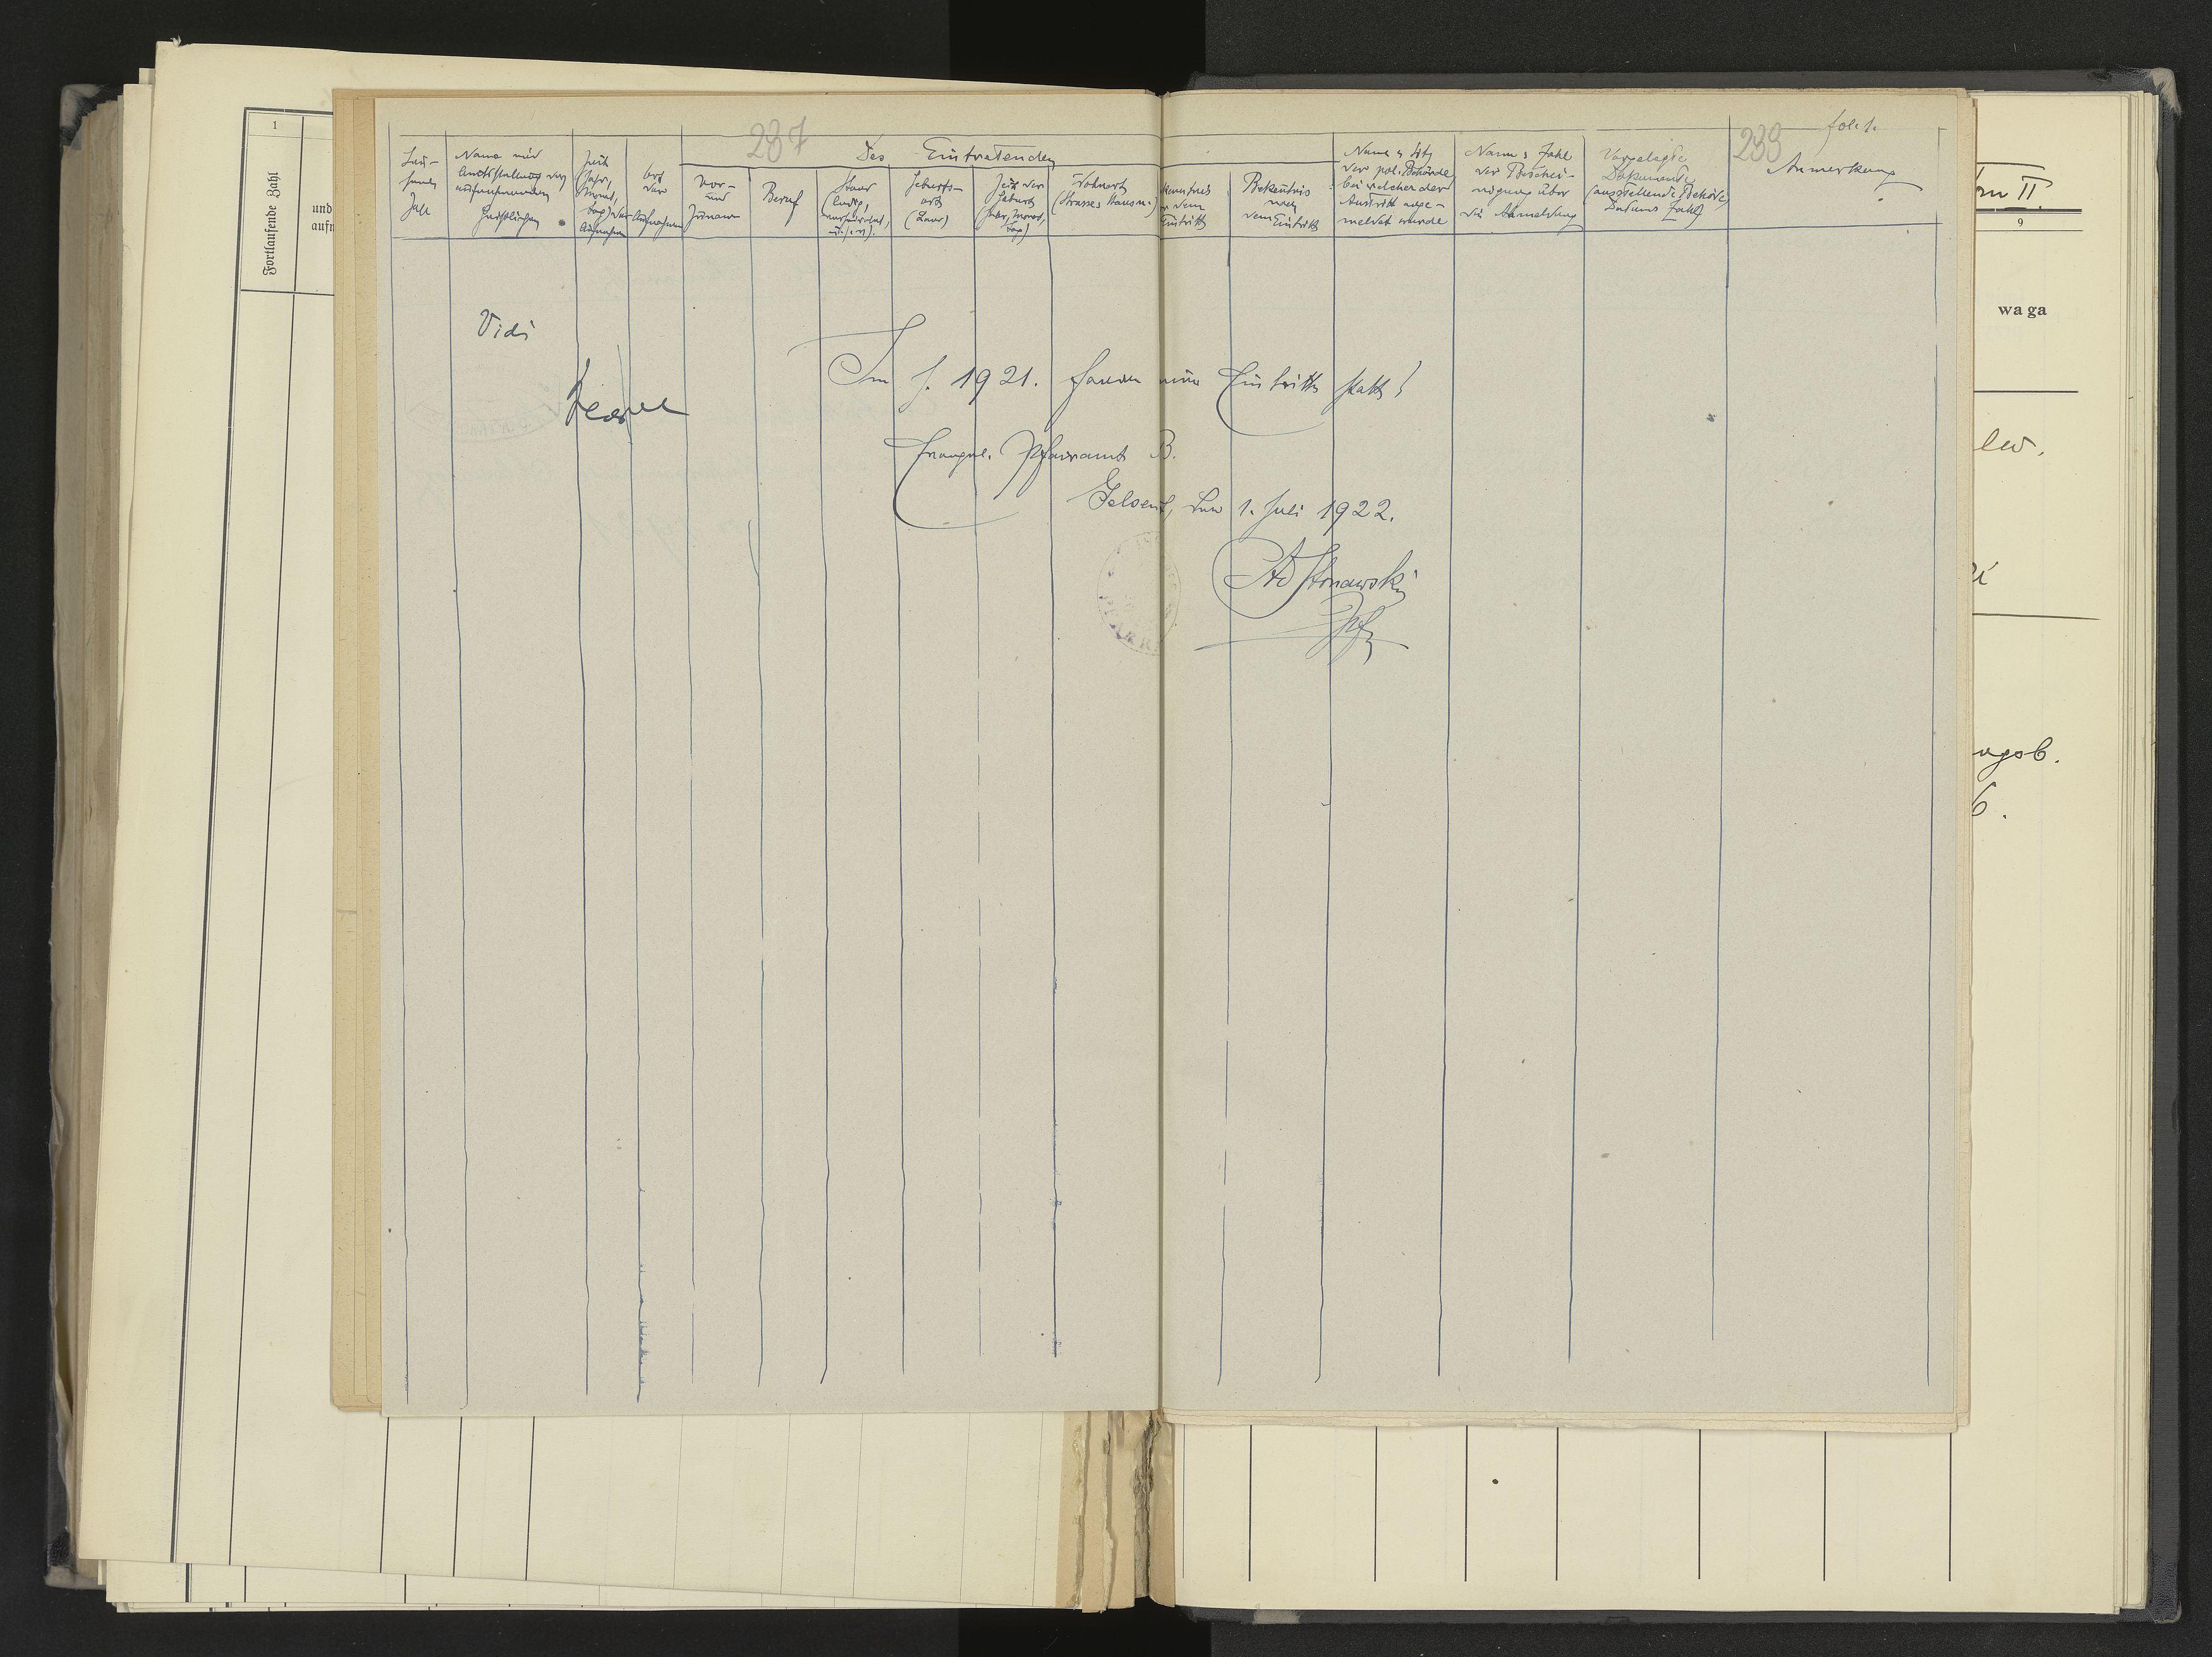 1
Fortlaufende Zahl
und
237
fol. 1.
239
Des Eintretenden
Lau-
fende
Zahl
Name und
Amtsstellung des
aufnehmenden
Geistlichen
Zeit
(Jahr,
Monat,
Tag) der
Aufnahme
Ort
der
Aufnahme
Vor-
und
Zuname
Beruf
Stand
(ledig,
Geburts-
ort
(Land)
Zeit der
Geburt
(Jahr, Monat,
Tag)
Wohnort
dem
Eintritt
Bekentnis
nach
dem Eintritt
Name u. Sitz
der pol. Behörde
bei welcher der
Austritt ange-
meldet wurde
Name u. Zahl
der Beschei-
nigung über
die Abmeldung
Vorgelegte
Dokumente
(ausstellende Behörde,
Datum Zahl)
Anmerkung
II.
9
waga
Vidi
Im J. 1921. fanden keine Eintritte statt!
Evangel. Pfarramt B.
den 1. Juli 1922.
Pfr